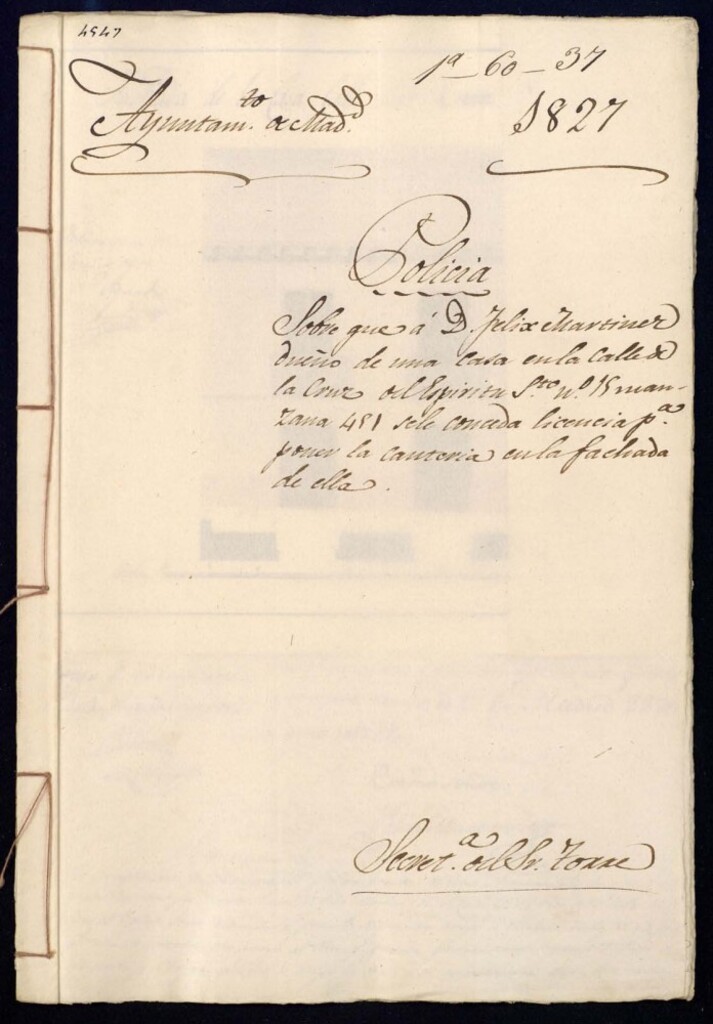 4547
1ª-60-37
Ayuntam.to de Mad.d
1827
Policia
Sobre que á D. Felix Martinez
dueño de una casa en la Calle de
la Cruz del Espiritu S.to n.º 15 man-
zana 451 sele conceda licencia p.a
poner la canteria en la fachada
de ella.
Secret.a del Sr. Torre